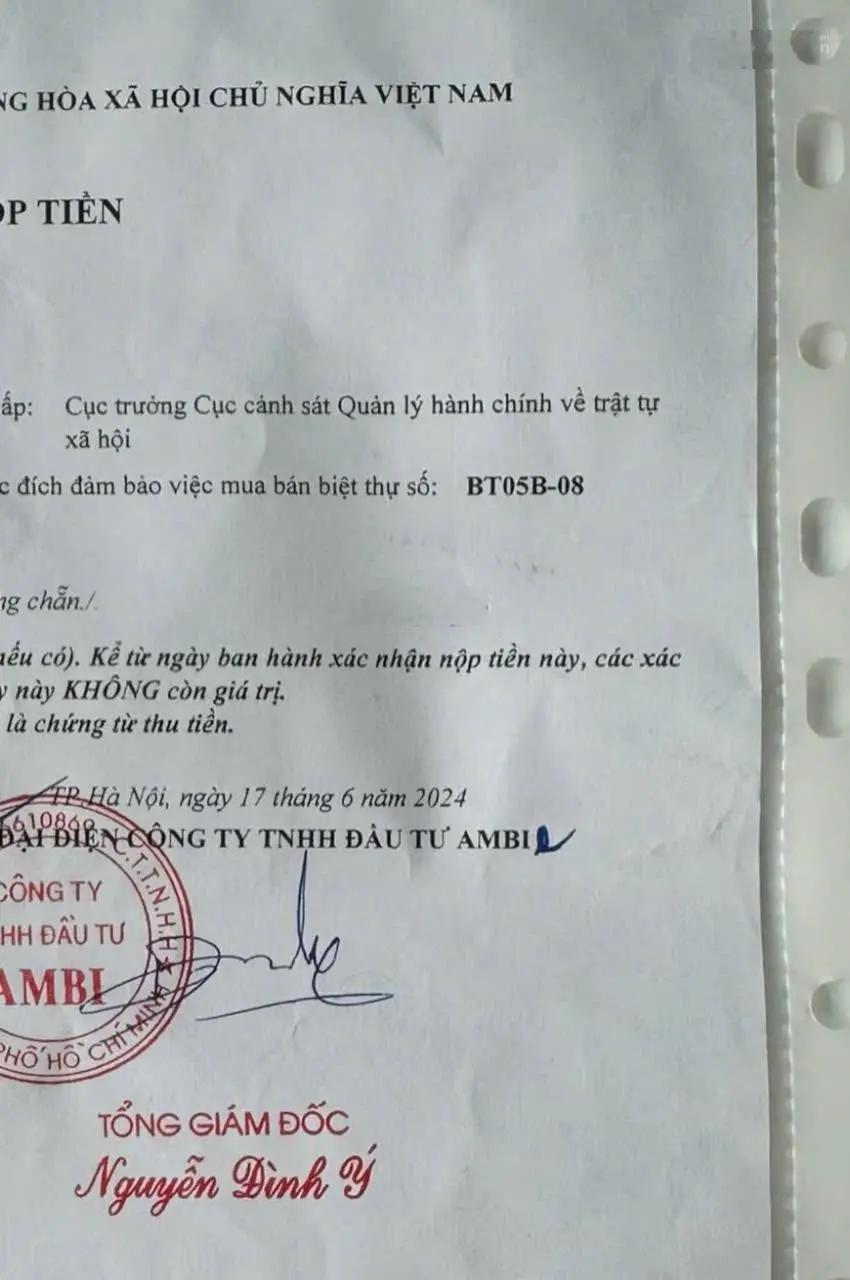 NG HÒA XÃ HỘI CHỦ NGHĨA VIỆT NAM
ỘP TIỀN
ấp: Cục trưởng Cục cảnh sát Quản lý hành chính về trật tự
xã hội
c đích đảm bảo việc mua bán biệt thự số: BT05B-08
ng chẵn./.
nếu có). Kể từ ngày ban hành xác nhận nộp tiền này, các xác
y này KHÔNG còn giá trị.
là chứng từ thu tiền.
TP.Hà Nội, ngày 17 tháng 6 năm 2024
ĐẠI DIỆN CÔNG TY TNHH ĐẦU TƯ AMBI
C.T.T.N.H.H
CÔNG TY
HH ĐẦU TƯ
AMBI
PHỐ HỒ CHÍ MINH
TỔNG GIÁM ĐỐC
Nguyễn Đình Ý